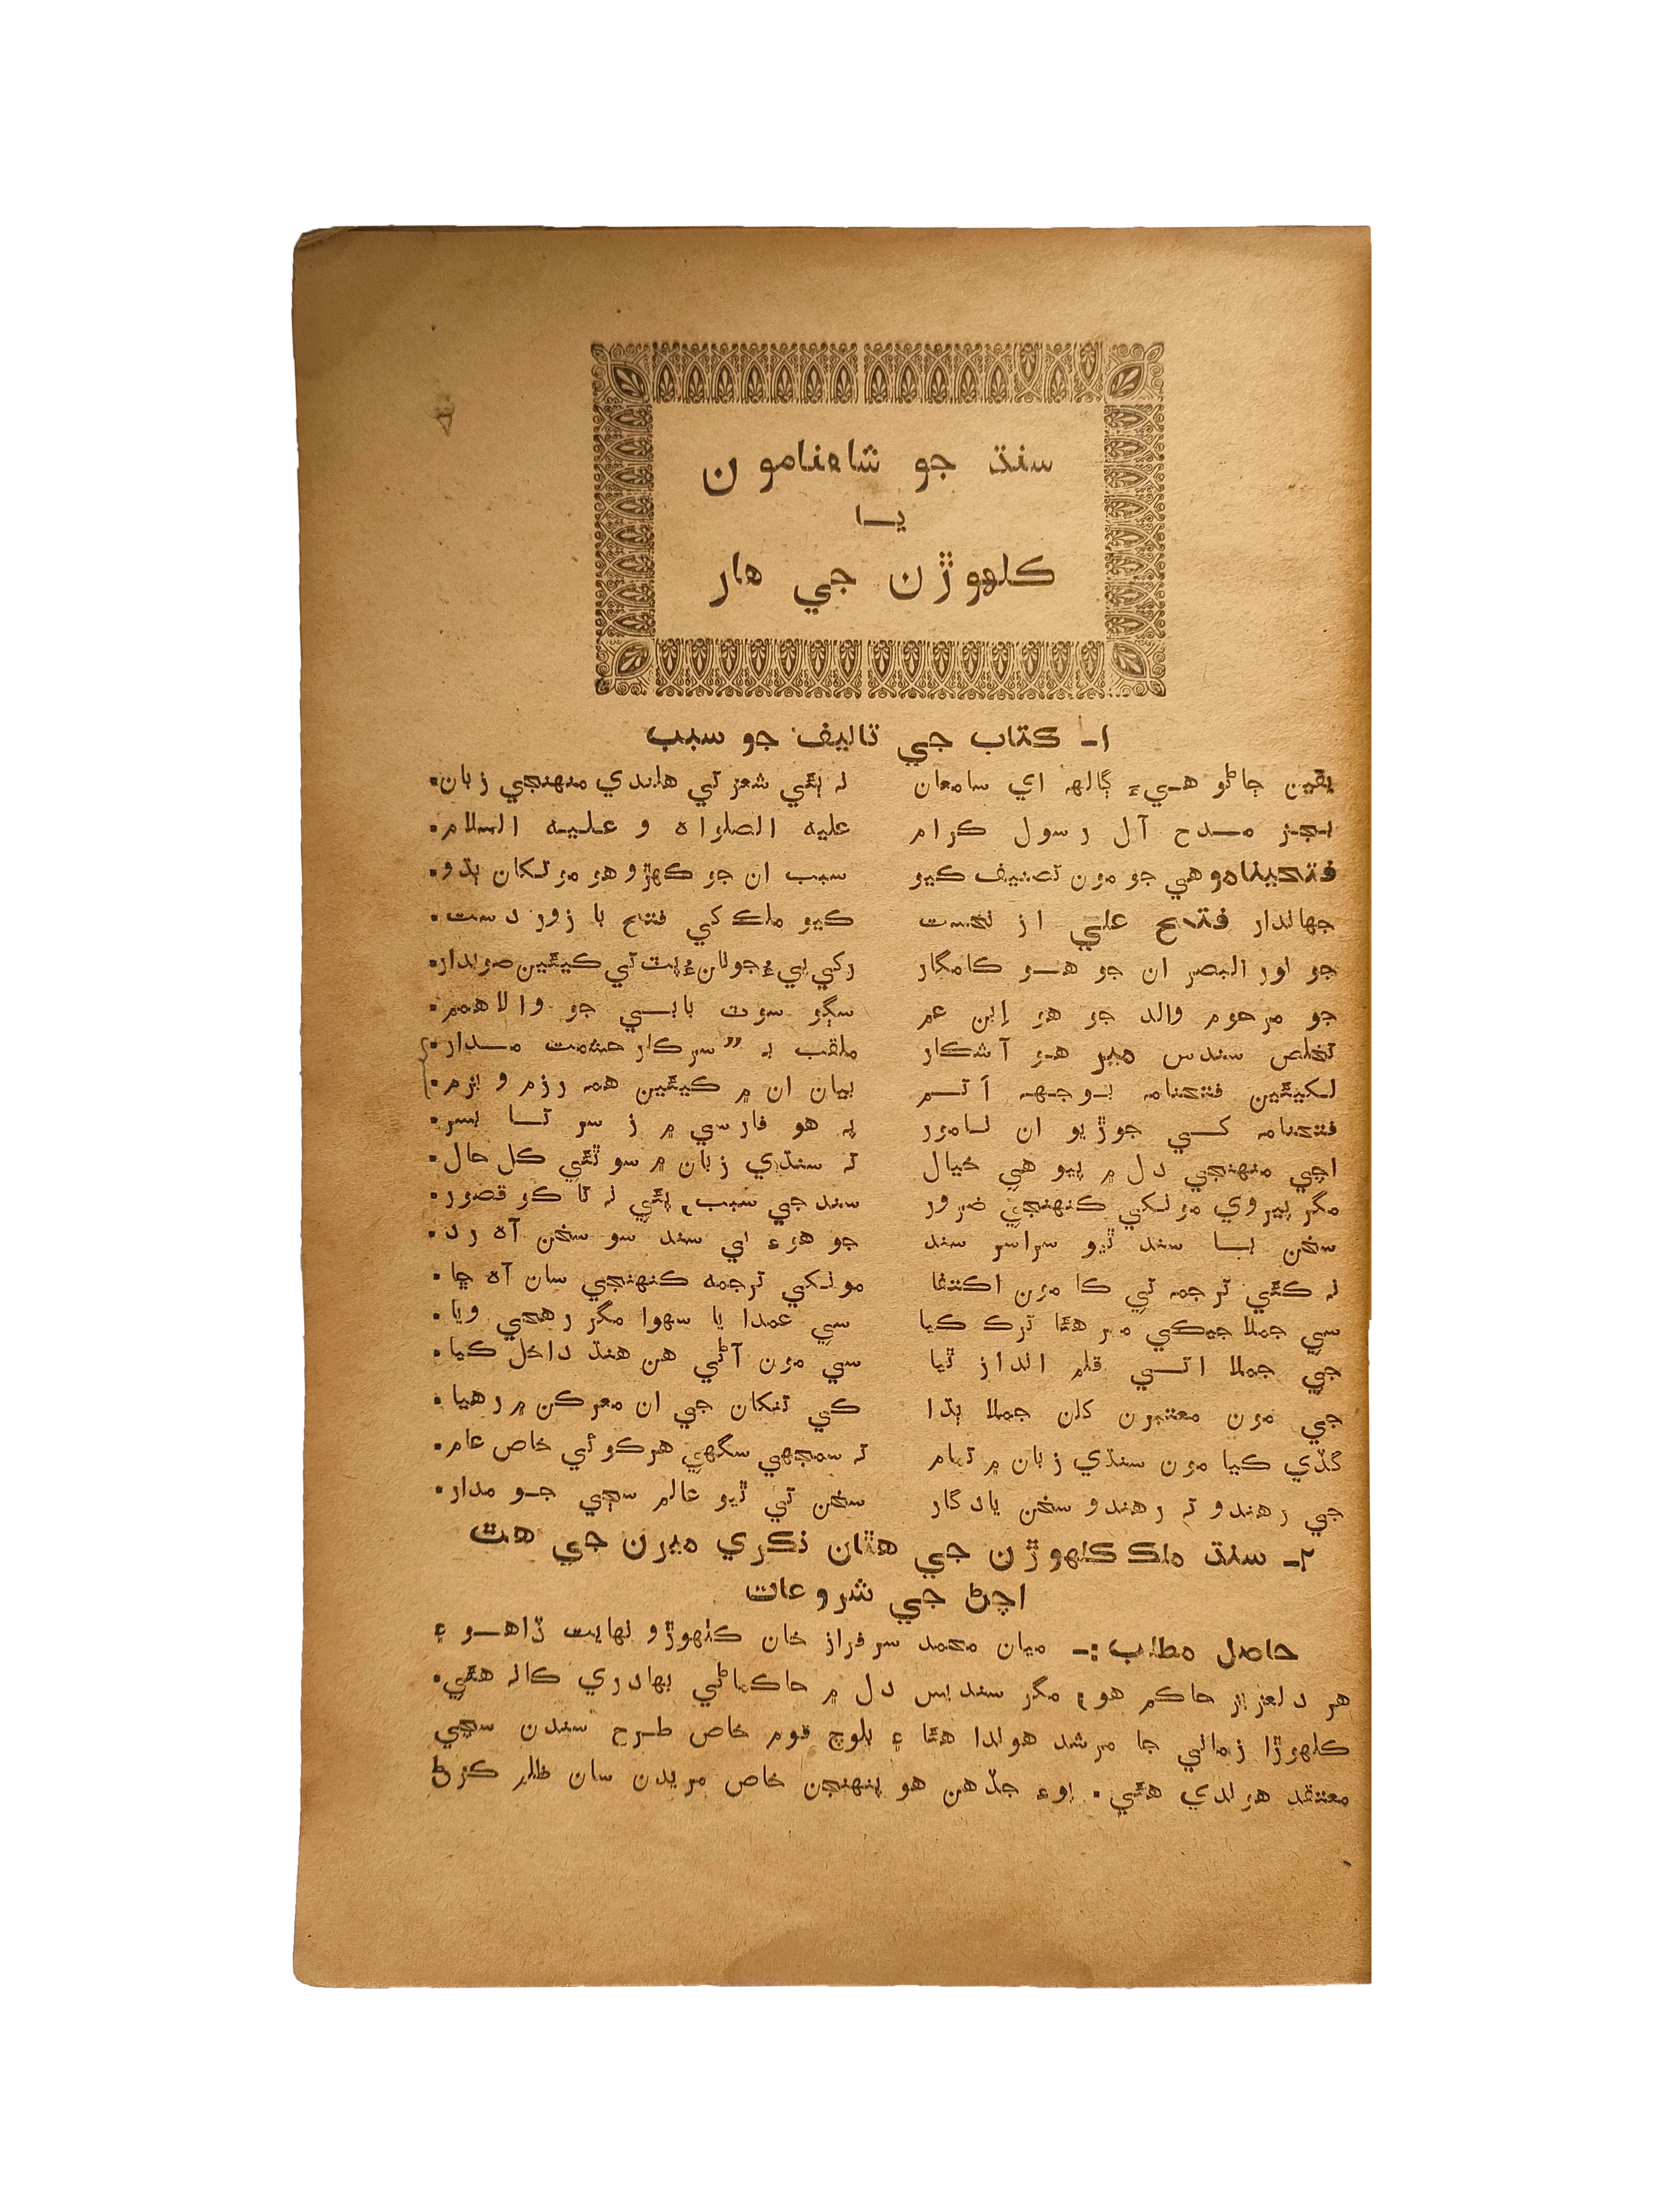 سنڌ جو شاهنامون
يا
ڪلهوڙن جي هار
١- ڪتاب جي تاليف جو سبب
يقين ڄاڻو هيءَ ڳالهه اي سامعان نہ ٻئي شعر تي هلندي منهنجي زبان.
بجز مدح آل رسول ڪرام عليه الصلواه و عليه السلام.
فتحيناموهي جو مون تصنيف ڪيو سبب ان جو ڪهڙو هو مونکان ٻڌو.
جهاندار فتح علي از نخست ڪيو ملڪ کي فتح با زور دست.
جو نور البصر ان جو هو ڪامگار رکي پيءُ جولان ۾ پٽ تي ڪيئين صوبدار.
جو مرحوم والد جو هو اِبن عم سڳو سوٽ بابي جو والا همم.
تخلص سندس مير هو آشڪار ملقب به ”سرڪار حشمت مدار.
لکيئين فتحنامه بوجهہ اَتم بيان ان ۾ ڪيئين همه رزم و بزم.
فتحنامه کي جوڙيو ان نامور پہ هو فارسي ۾ ز سر تا بسر.
اچي منهنجي دل ۾ پيو هي خيال تہ سنڌي زبان ۾ سو ٿئي ڪل حال.
مگر پيروي مونکي ڪنهنجي ضرور سند جي سبب، ٻئي نہ ٿا ڪو قصور.
سخن با سند ٿيو سراسر سند جو هوءِ بي سند سو سخن آه رد.
نہ ڪئي ترجمه تي ڪا مون اڪتفا مونکي ترجمه ڪنهنجي سان آه ڇا.
سي جملا جيڪي مير هئا ترڪ ڪيا سي عمدا يا سهوا مگر رهجي ويا.
جي جملا اتي قلم انداز ٿيا سي مون آڻي هن هنڌ داخل ڪيا.
جي مون معتبرن کان جملا ٻڌا کي تنکان جي ان معرڪن ۾ رهيا.
گڏي ڪيا مون سنڌي زبان ۾ تمام تہ سمجهي سگهي هرڪوئي خاص عام.
جي رهندو تہ رهندو سخن يادگار سخن تي ٿيو عالم سڄي جو مدار.
٢- سنڌ ملڪ ڪلهوڙن جي هٿان نڪري ميرن جي هٿ
اچڻ جي شروعات
حاصل مطلب :- ميان محمد سرفراز خان ڪلهوڙو نهايت ڏاهو ۽
هر دلعزيز حاڪم هو، مگر سنديس دل ۾ حاڪماڻي بهادري ڪانہ هئي.
ڪلهوڙا زماني جا مرشد هوندا هئا ۽ بلوچ قوم خاص طرح سندن سڄي
معتقد هوندي هئي. اوءِ جڏهن هو پنهنجن خاص مريدن سان ظلم ڪرڻ